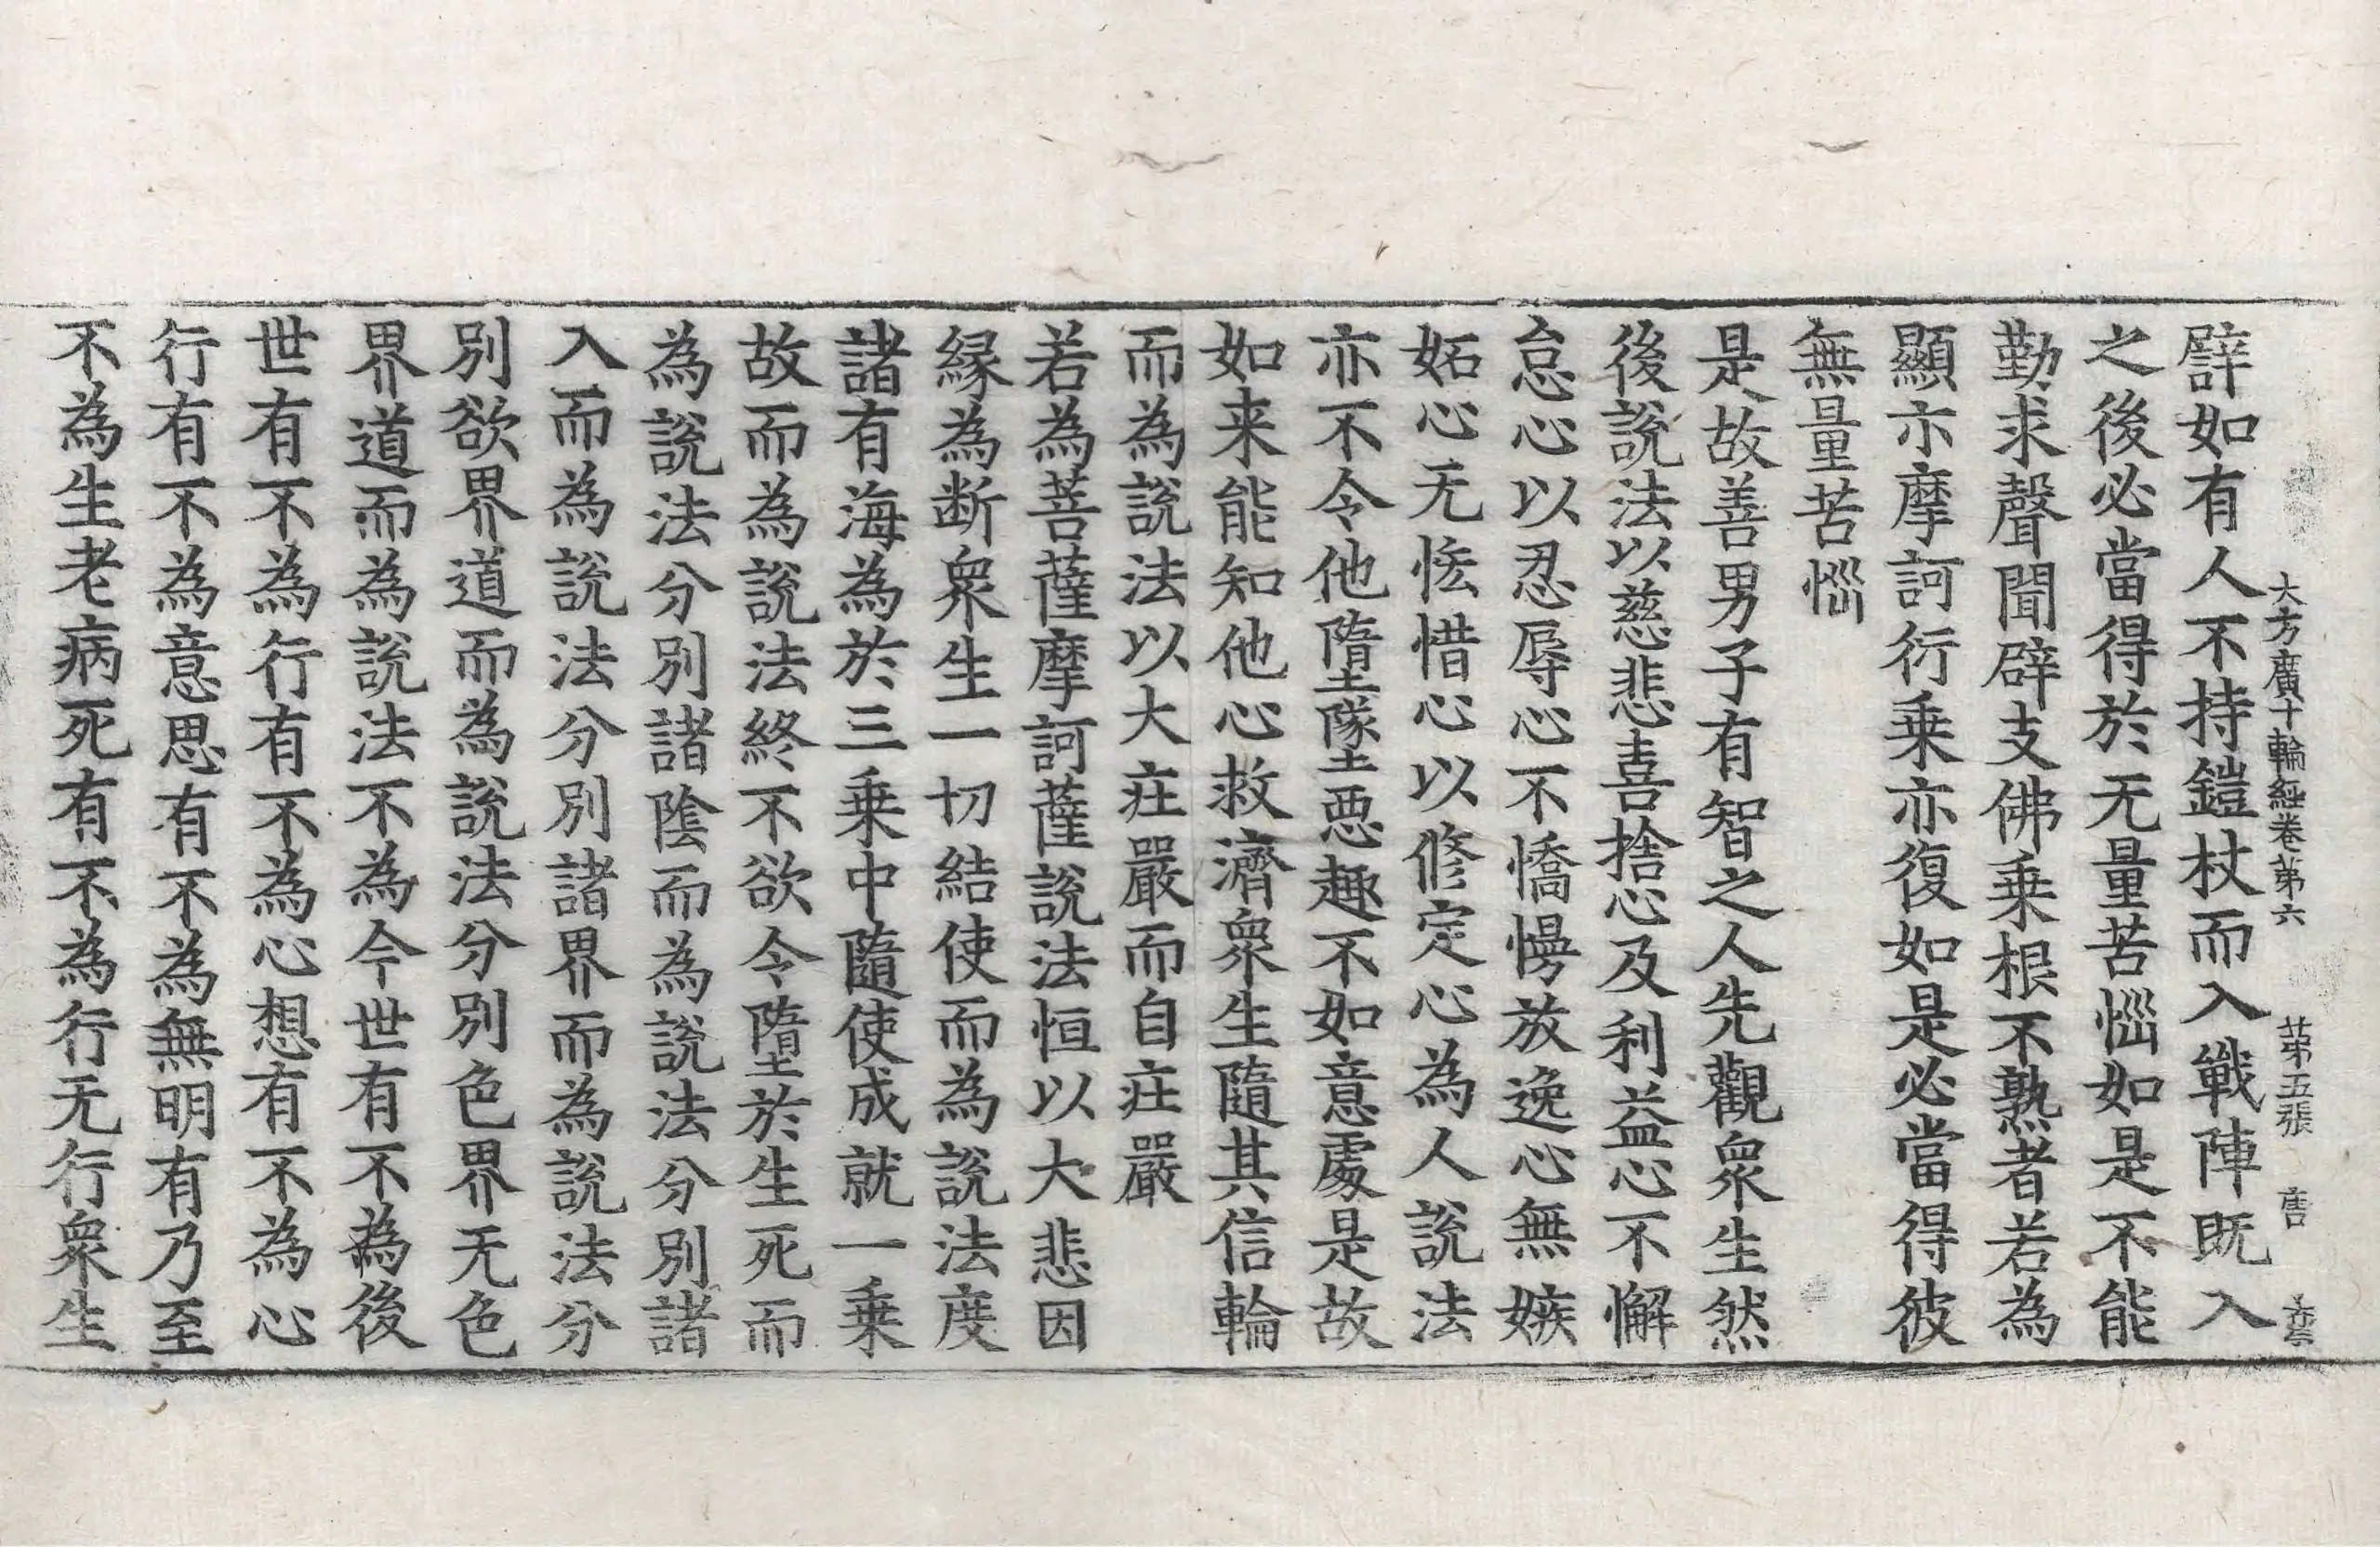 大方廣十輪經卷苐六　苐五張　唐
譬如有人不持鎧杖而入戰陣既入
之後必當得於无量苦惱如是不能
勤求聲聞辟支佛乗根不熟者若為
顯示摩訶衍乗亦復如是必當得彼
無量苦惱
是故善男子有智之人先觀衆生然
後說法以慈悲喜捨心及利益心不懈
怠心以忍辱心不憍慢放逸心無嫉
妬心无恡惜心以修定心為人說法
亦不令他墮墜惡趣不如意處是故
如来能知他心救濟衆生隨其信輪
而為說法以大莊嚴而自莊嚴
若為菩薩摩訶薩說法恒以大悲因
緣為断衆生一切結使而為說法度
諸有海為於三乗中隨使成就一乗
故而為說法終不欲令墮於生死而
為說法分別諸陰而為說法分別諸
入而為說法分別諸界而為說法分
別欲界道而為說法分別色界无色
界道而為說法不為今世有不為後
世有不為行有不為心想有不為心
行有不為意思有不為無明有乃至
不為生老病死有不為行无行衆生